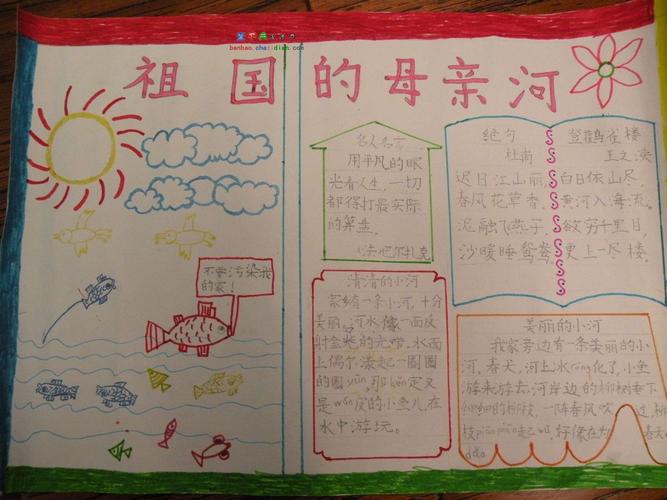 banbao.chazidian.com
祖国的母亲河
不要污染我
的家！
名人名言
用平凡的眼
光看人生，一切
都得打最实际
的算盘。
（法）巴尔扎克
绝句
杜甫
迟日江山丽，
春风花草香。
泥融飞燕子，
沙暖睡鸳鸯。
登鹳雀楼
王之涣
白日依山尽，
黄河入海流。
欲穷千里目，
更上一层楼。
清清的小河
家乡有一条小河，十分
美丽。河水像一面反
射金光的光带，水面
上偶尔漾起一圈圈
的圆yuán，那kěn定又
是wán皮的小鱼儿在
水中游玩。
美丽的小河
我家旁边有一条美丽的小
河，春天，河上冰róng化了，小鱼
游来游去，河岸边的柳树垂下
细细的柳枝，一阵春风吹过，柳
枝piāo piāo起wǔ，好像在为
春天